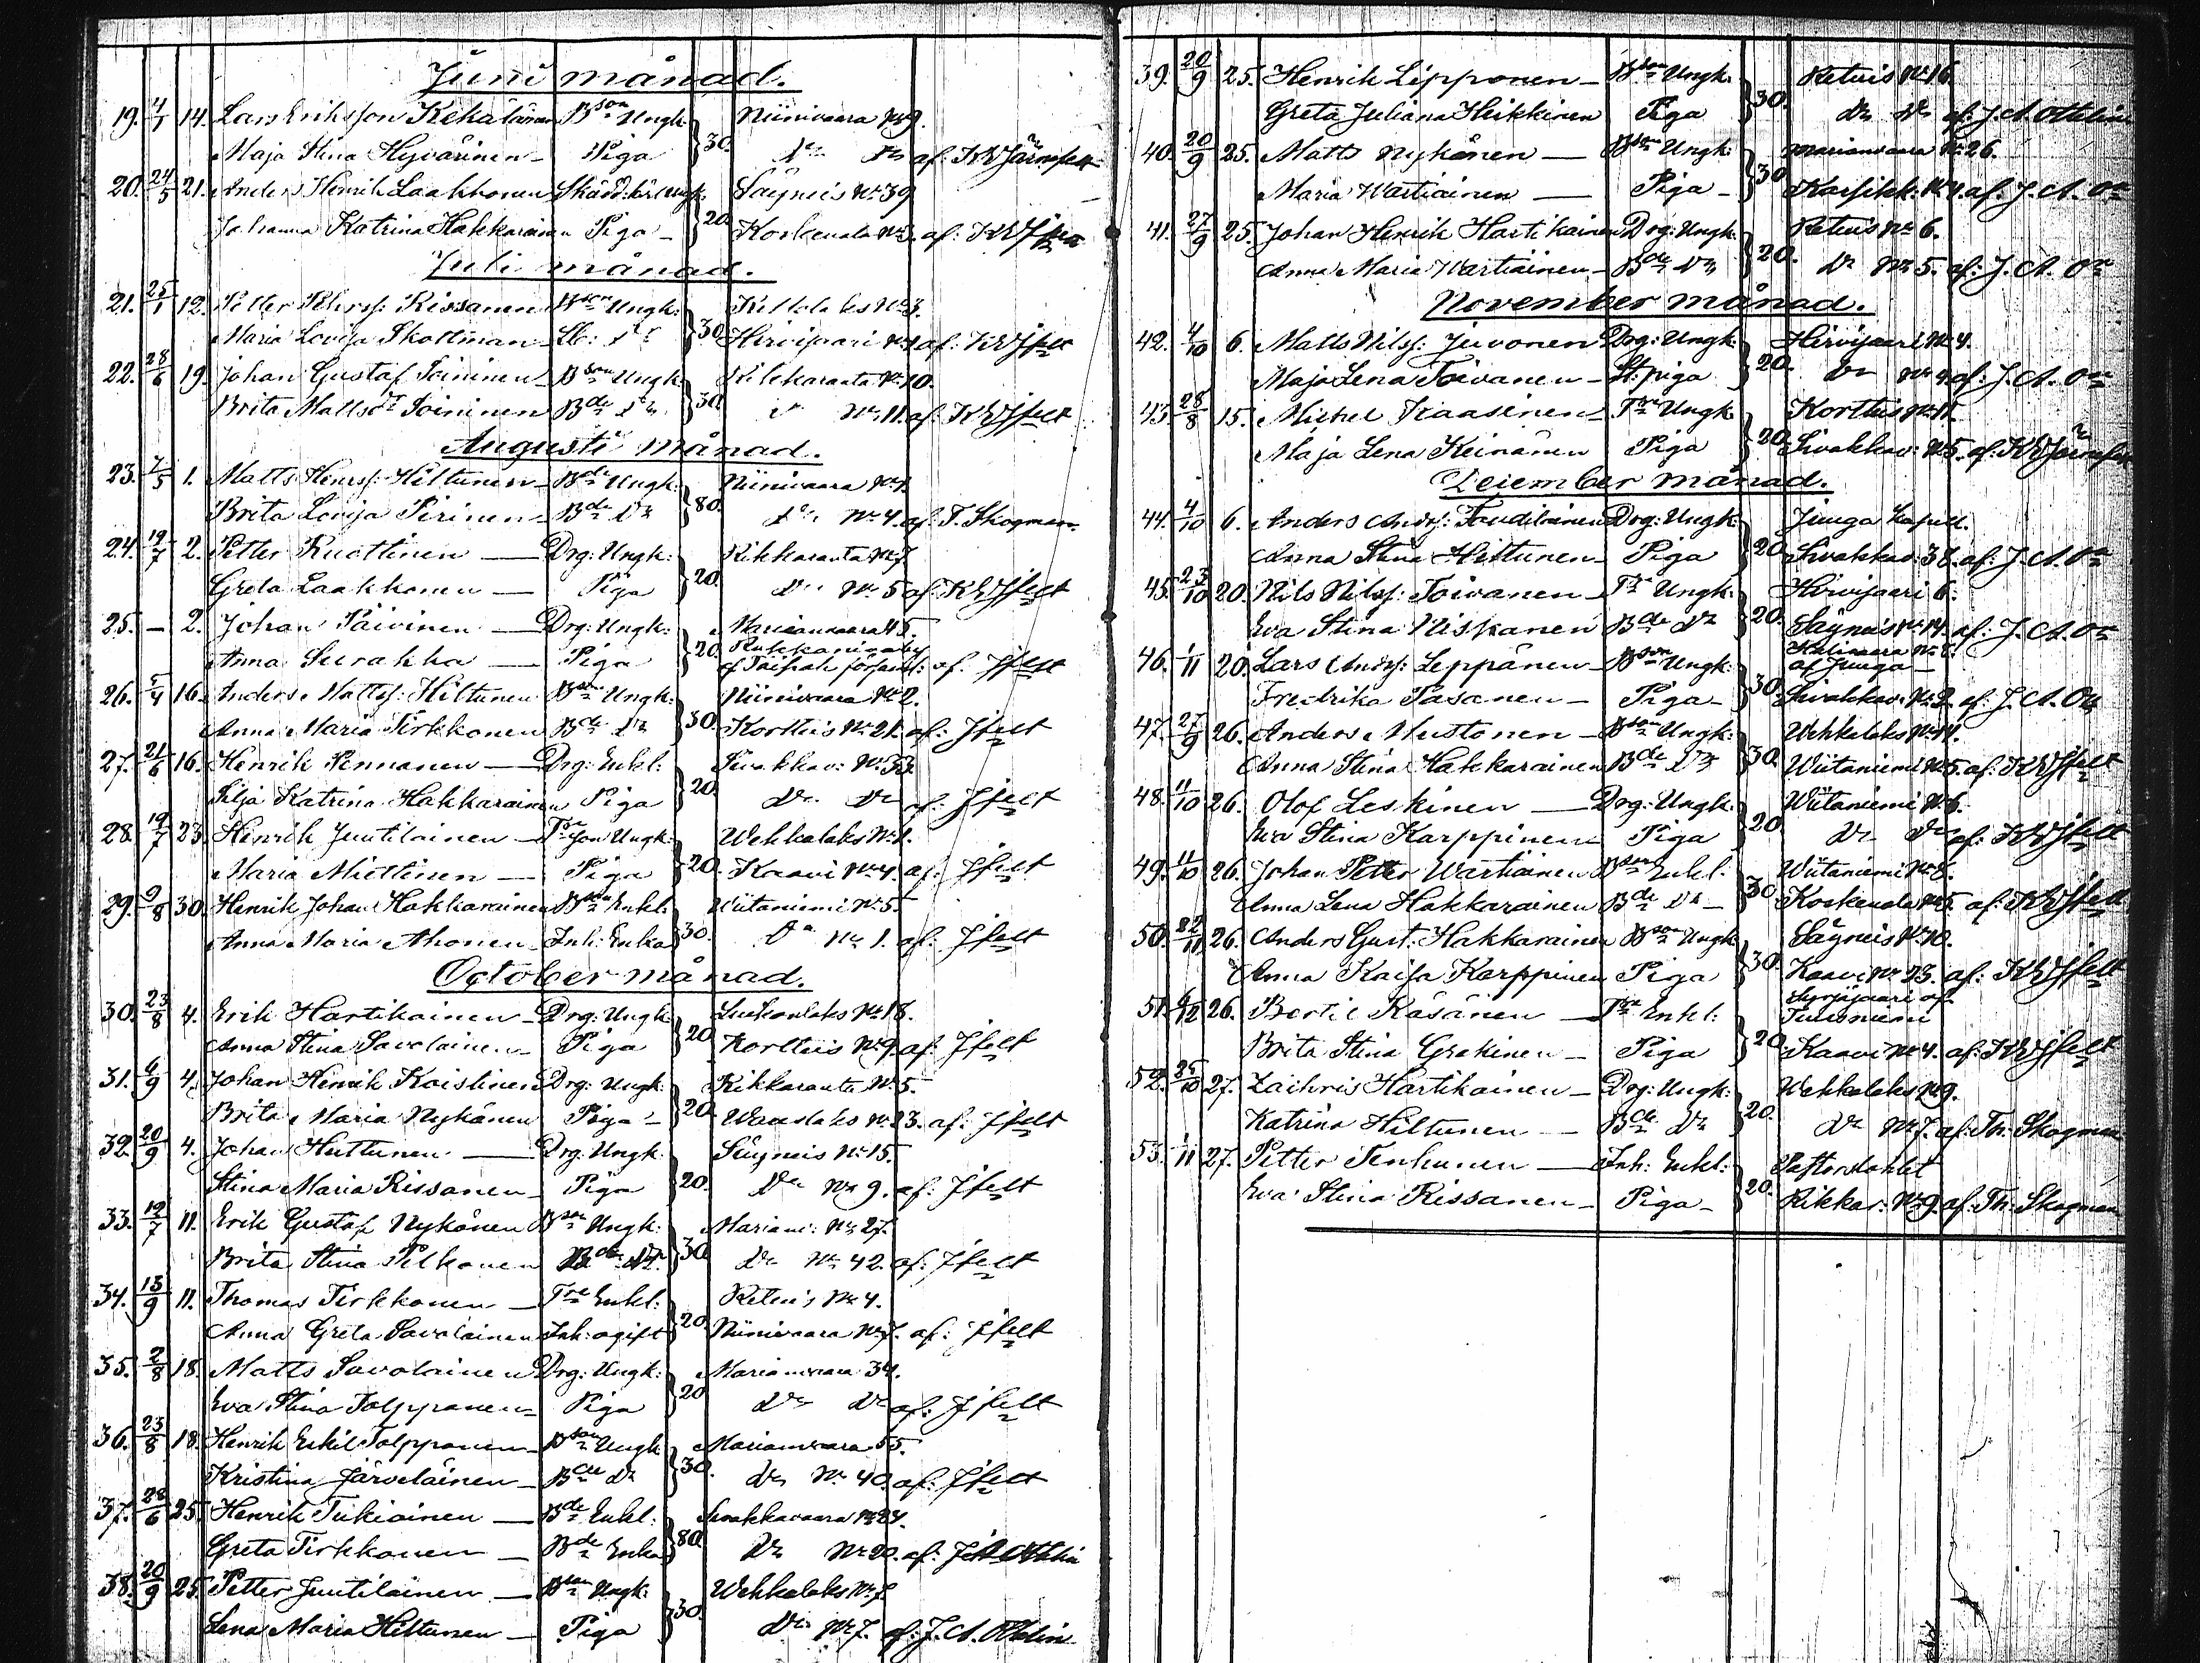 Juni månad.
19. 4/5 14. Lars Eriksson Kekäläinen Bson Ungk. Niinivaara No 9.
Maja Stina Hyvärinen - Piga } 30. Do Do af: KE Järnefelt
20. 24/5 21. Anders Henrik Laakkonen Säyneis No 39
Johanna Katrina Hakkarainen Piga - } 20. Koskenala No 3. af: KE Jfelt
Juli månad.
21. 25/1 12. Petter Pehrss: Rissanen Bson Ungk: Keltolaks No 3.
Maria Lovisa Skottman - Do } 30. Hirvijaari No 4 af: KE Jfelt
22. 28/6 19. Johan Gustaf Soininen - Bson Ungk: Rikkaranta No 10.
Brita Mattsdr Soininen Bde Do } 30. Do No 11. af: KE Jfelt
Augusti månad.
23. 7/5 1. Matts Henrss: Hiltunen - Bde Ungk: Niinivaara No 1.
Brita Lovisa Pirinen - Bde Do } 80. Do No 4. af: T. Skogman.
24. 19/7 2. Petter Ruottinen - Drg: Ungk: Rikkaranta No 7.
Greta Laakkonen - Piga } 20. Do No 5 af: KE Jfelt
25. - 2. Johan Päivinen - Drg: Ungk: Marianvaara 45.
Anna Surakka - Piga } 20. af: Jfelt
26. 5/4 16. Anders Mattss: Hiltunen Bson Ungk: Niinivaara No 2.
Anna Maria Tirkkonen Bde Do } 30. Kortteis No 21. af: Jfelt
27. 21/6 16. Henrik Pennanen - Drg: Enkl: Sivakkav: No 33.
Silja Katrina Hakkarainen Piga } 20. Do Do af: Jfelt
28. 19/7 23. Henrik Juutilainen - Ungk: Wehkalaks No 1.
Maria Miettinen - Piga } 20. Kaavi No 4. af: Jfelt
29. 9/8 30. Henrik Johan Hakkarainen Bson Enkl: Wiitaniemi No 5.
Anna Maria Ahonen - Inh: Enka } 30. Do No 1. af: Jfelt
October månad.
30. 23/8 4. Erik Hartikainen - Drg: Ungk: No 18.
Anna Stina Savolainen - Piga } 20. Kortteis No 9. af: Jfelt
31. 6/9 4. Johan Henrik Koistinen Drg: Ungk: Rikkaranta No 5.
Brita Maria Nykänen Piga - } 20. Waaslaks No 23. af: Jfelt
32. 20/9 4. Johan Huttunen - Drg: Ungk: Säyneis No 15.
Stina Maria Rissanen - Piga } 20. Do No 9. af: Jfelt
33. 19/7 11. Erik Gustaf Nykänen Bson Ungk: Marianv: No 27.
Brita Stina Pelkonen Bde Do } 30. Do No 42. af: Jfelt
34. 13/9 11. Thomas Tirkkonen - Tre Enkl: Retuis No 4.
Anna Greta Savolainen Inh: ogift } 20. Niinivaara No 7. af: Jfelt
35. 2/8 18. Matts Savolainen Drg: Ungk: Marianvaara 34.
Eva Stina Tolppanen - Piga } 20. Do Do af: Jfelt
36. 23/8 18. Henrik Eskil Tolppanen - Bson Ungk Marianvaara 55.
Kristina Järveläinen - Bde Do } 30. Do No 40. af: Jfelt
37. 28/6 25. Henrik Tukiainen - Bde Enkl: Sivakkavaara No 24.
Greta Tirkkonen - Bde Enka } 80. Do No 20. af: J. A. Ottelin
38. 20/9 25. Petter Juutilainen - Bson Ungk: Wehkalaks No 7.
Lena Maria Hiltunen - Piga } 30. Do No 7. af: J. A. Ottelin
39. 20/9 25. Henrik Lipponen - Bson Ungk: Retuis No 16.
Greta Juliana Heikkinen Piga } 30. Do Do af: J. A. Ottelin
40. 20/9 25. Matts Nykänen - Bson Ungk: Marianvaara No 26.
Maria Wartiainen - Piga - } 30. af: J. A. On
41. 27/9 25. Johan Henrik Hartikainen Drg: Ungk: Retuis No 6.
Anna Maria Wartiainen - Bde Do } 20. Do No 5. af: J. A. On
November månad.
42. 4/10 6. Matts Nilss: Juvonen Drg: Ungk: Hirvijaari No 4.
Maja Lena Toivanen - St: piga } 20. Do No 4. af: J. A. On
43. 28/8 15. Michel Kaasinen - Tre Ungk: Kortteis No 11.
Maja Lena Keinänen Piga } 20. Sivakkav: No 5. af: KE Järnefelt
December månad.
44. 4/10 6. Anders Andrs: Drg: Ungk: Juuga kapell.
Anna Stina Hiltunen - Piga } 20. Sivakkav: 38. af: J. A. On
45. 23/10 20. Nils Nilss: Toivanen - Tre Ungk: Hirvijaari 6.
Eva Stina Niskanen Bde Do } 20. Säyneis No 14. af: J. A. On
46. 1/11 20. Lars Andrs: Leppänen - Bson Ungk: af Juuga -
Fredrika Pasanen - Piga - } 30. Sivakkav: No 2. af: J. A. On
47. 27/9 26. Anders Mustonen - Bson Ungk: Wehkalaks No 14.
Anna Stina Hakkarainen Bde Do } 30. Wiitaniemi No 5. af: KE Jfelt
48. 11/10 26. Olof Leskinen - Drg: Ungk: Wiitaniemi No 6.
Eva Stina Karppinen Piga } 20. Do Do af: KE Jfelt
49. 11/10 26. Johan Petter Wartiainen Bson Enkl. Wiitaniemi No 8.
Anna Lena Hakkarainen Bde Do - } 30. Koskenala No 5. af: KE Jfelt
50. 22/11 26. Anders Gust: Hakkarainen Bson Ungk Säyneis No 10.
Anna Kaisa Karppinen Piga } 30. Kaavi No 23. af: KE Jfelt
51. 6/12 26. Bertil Räsänen - Tre Enkl: Syrjäjaari af Tuusniemi
Brita Stina Grekinen - Piga } 20. Kaavi No 4. af: KE Jfelt
52. 25/10 27. Zachris Hartikainen - Drg: Ungk: Wehkalaks No 9.
Katrina Hiltunen - Bde Do } 20. Do No 7. af: Th: Skogman
53. 1/11 27. Petter Tenhunen - Inh: Enkl: Pastorstohlet
Eva Stina Rissanen - Piga - } 20. Rikkar: No 9. af: Th: Skogman